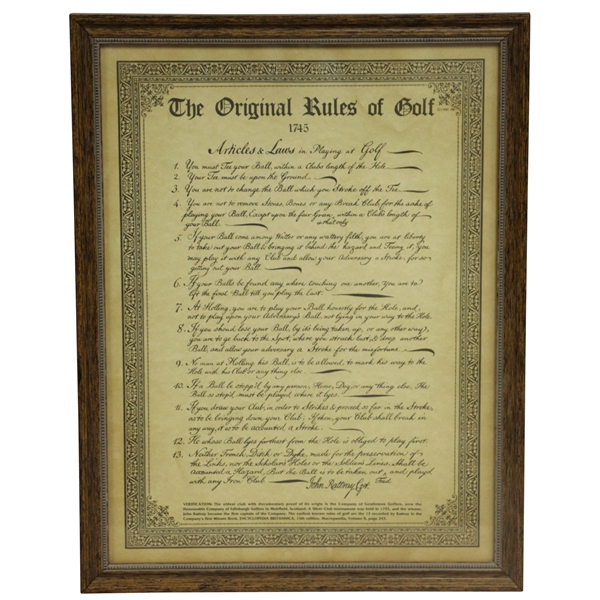 The Original Rules of Golf
1745
Articles & Laws in Playing at Golf
1. You must Tee your Ball, within a Clubs length of the Hole
2. Your Tee must be upon the Ground
3. You are not to change the Ball which you Stroke off the Tee
4. You are not to remove Stones, Bones or any Break Club for the sake of
playing your Ball, Except upon the fair Green, within a Clubs length of
your Ball. that only
5. If your Ball come among Water or any wattery filth, you are at liberty
to take out your Ball & bringing it behind the hazard and Teeing it, You
may play it with any Club and allow your Adversary a Stroke, for so
getting out your Ball
6. If your Balls be found any where touching one another, You are to
lift the first Ball till you play the last
7. At Holling, you are to play your Ball, honestly for the Hole, and,
not to play upon your Adversary's Ball, not lying in your way to the Hole.
8. If you should lose your Ball, by its being taken up, or any other way,
you are to go back to the Spot, where you struck last, & drop another
Ball, and allow your adversary a Stroke for the misfortune
9. No man at Holling his Ball, is to be allowed, to mark his way to the
Hole with his Club or any thing else
10. If a Ball be stopp'd by any person, Horse, Dog or any thing else, The
Ball so stop'd must be played where it lyes.
11. If you draw your Club, in order to Strike & proceed so far in the Stroke,
as to be bringing down your Club; If then, your Club shall break in
any way, it is to be accounted a Stroke
12. He whose Ball lyes farthest from the Hole is obliged to play first.
13. Neither Trench, Ditch or Dyke, made for the preservation of
the Links, nor the Scholar's Holes or the Soldier's Lines, Shall be
accounted a Hazard, But the Ball is to be taken out, and played
with any Iron Club
John Rattray, Cpt
VERIFICATION: The oldest club with documentary proof of its origin is the Company of Gentlemen Golfers, now the
Honourable Company of Edinburgh Golfers in Muirfield, Scotland. A Silver Club tournament was held in 1745, and the winner,
John Rattray became the first captain of the Company. The earliest known rules of golf are the 13 recorded by Rattray in the
Company's first Minute Book. ENCYCLOPEDIA BRITANNICA, 15th edition, Macropaedia, Volume 8, page 243.